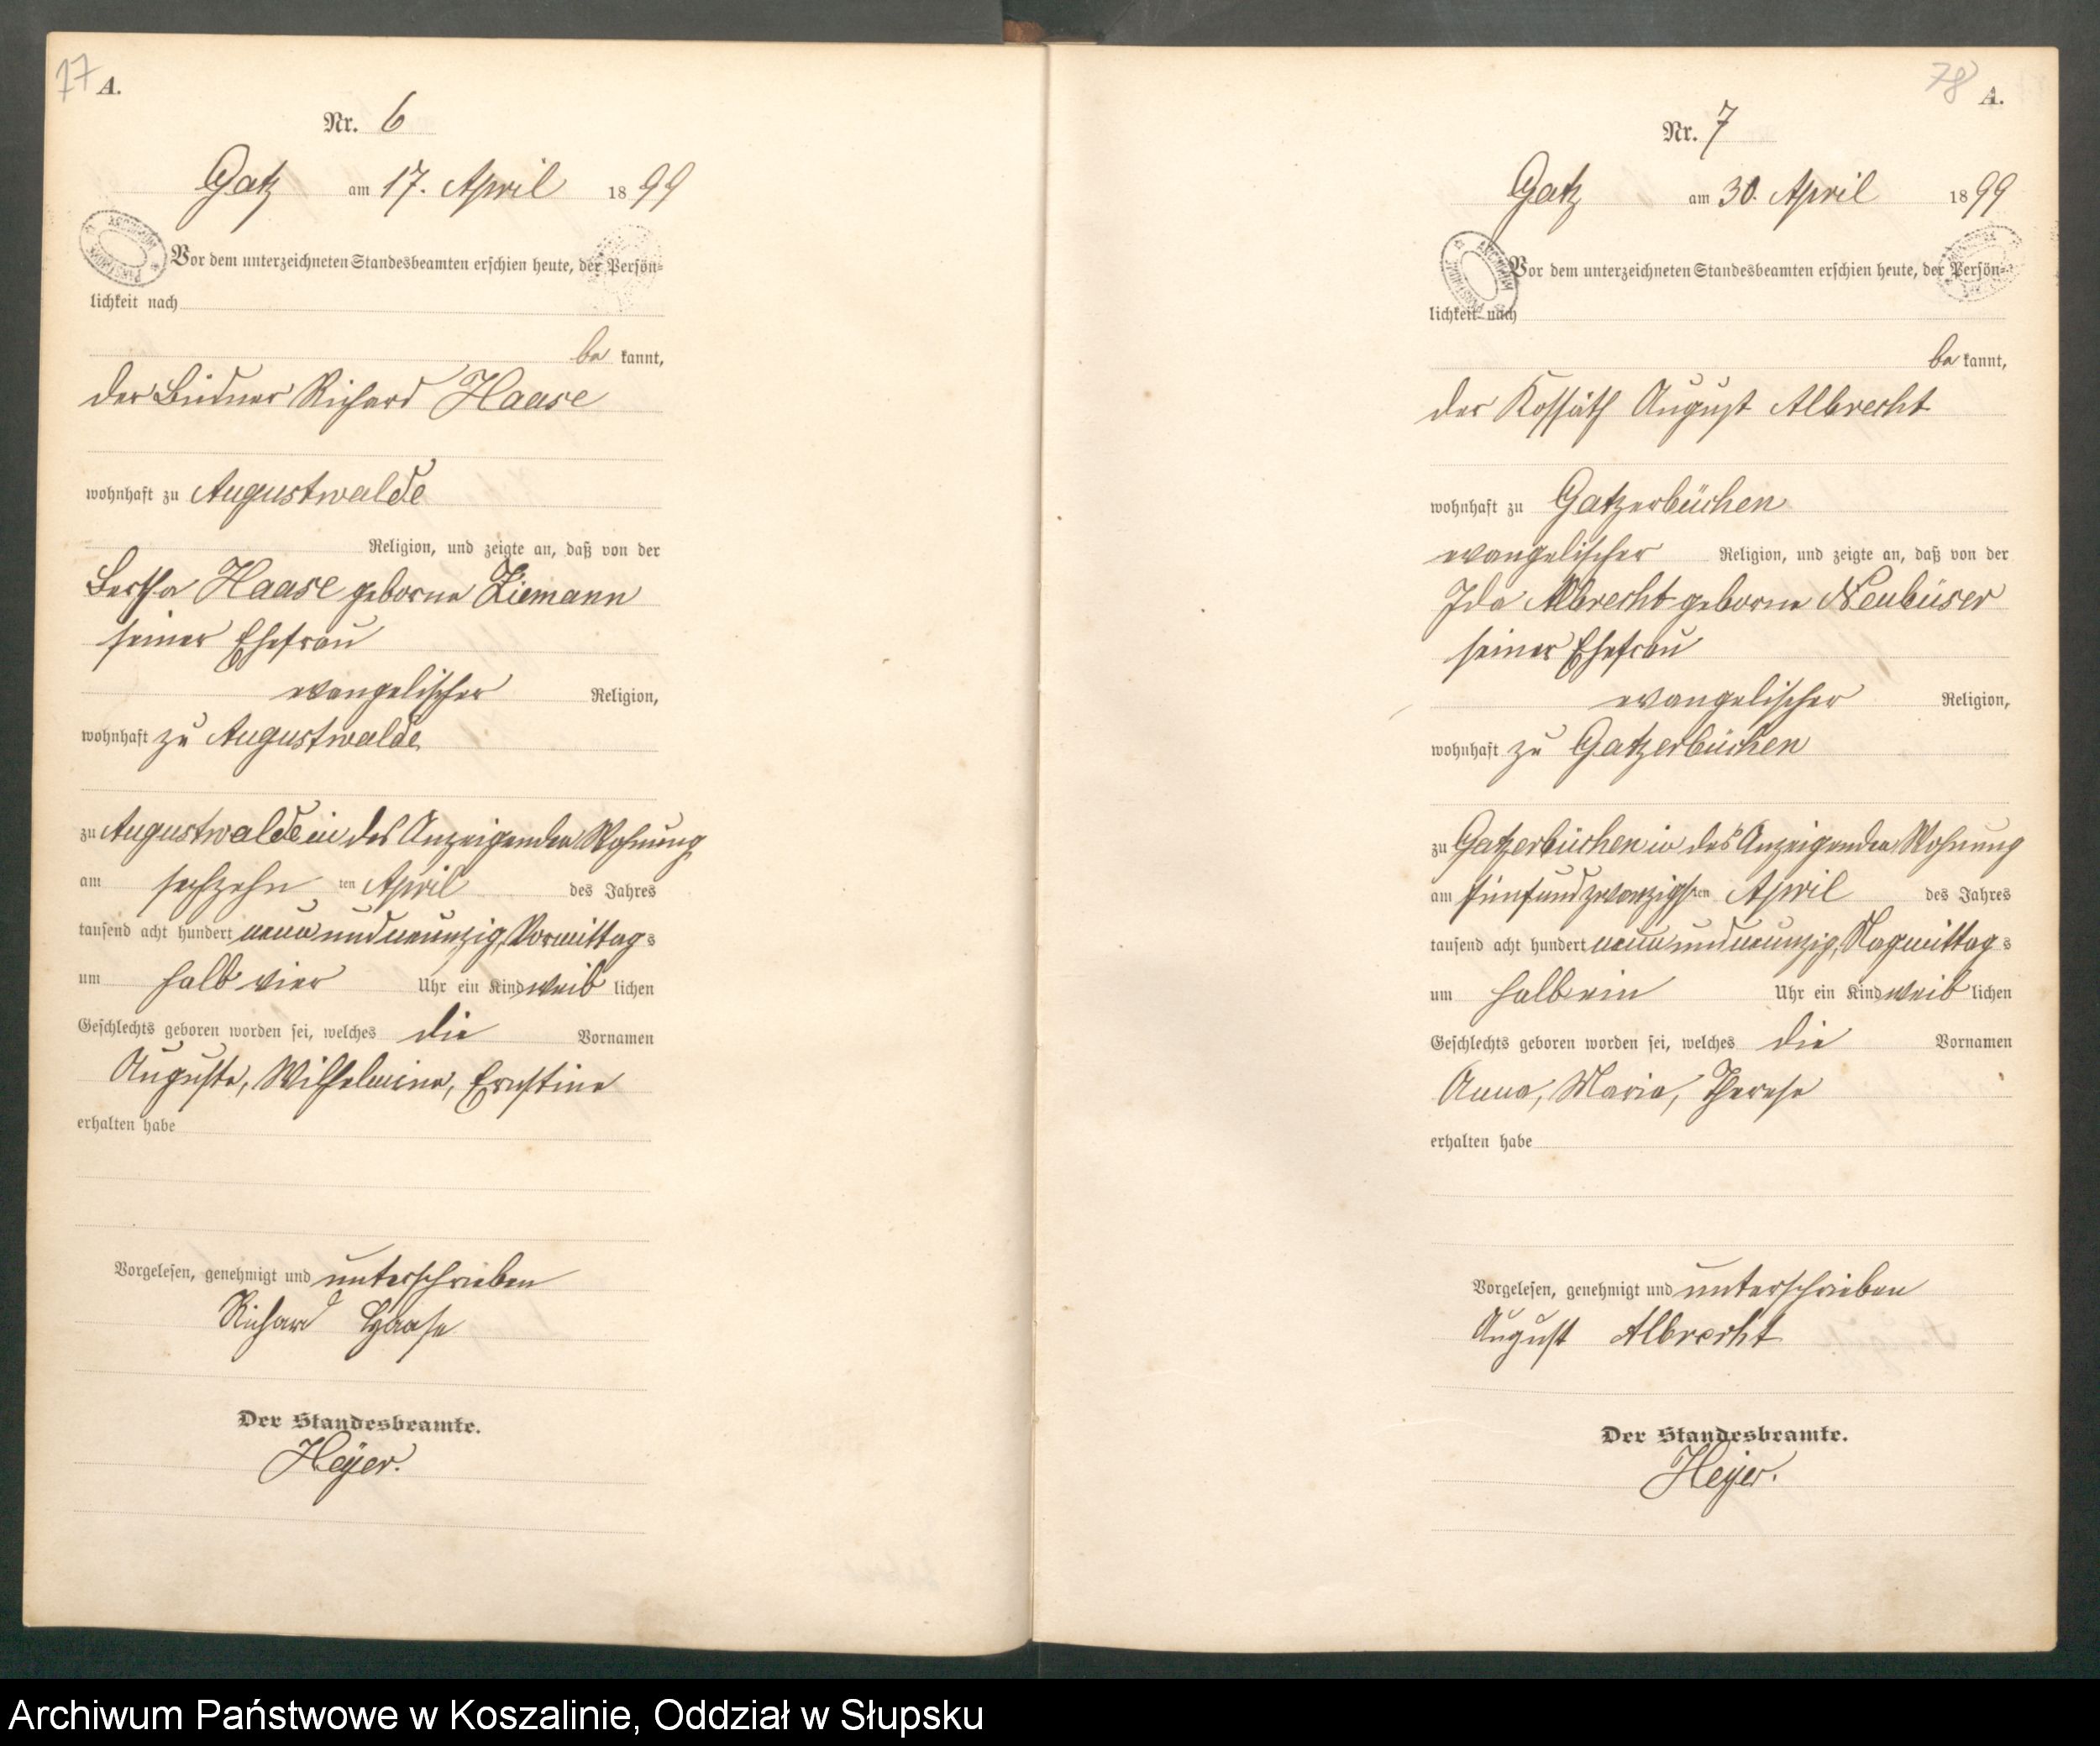 77 A.
Nr. 6
Gatz am 17. April 1899
Vor dem unterzeichneten Standesbeamten erschien heute, der Persön-
lichkeit nach
be kannt,
der Büdner Richard Haase
wohnhaft zu Augustwalde
Religion, und zeigte an, daß von der
Bertha Haase geborne Ziemann
seiner Ehefrau
evangelischer Religion,
wohnhaft zu Augustwalde
zu Augustwalde in des Anzeigenden Wohnung
am sechzehn ten April des Jahres
tausend acht hundert neun und neunzig, Vormittag s
um halb vier Uhr ein Kind weib lichen
Geschlechts geboren worden sei, welches die Vornamen
Auguste, Wilhelmine, Ernstine
erhalten habe
Vorgelesen, genehmigt und unterschrieben
Richard Haase
Der Standesbeamte.
Heyer.
78 A.
Nr. 7
Gatz am 30. April 1899
Vor dem unterzeichneten Standesbeamten erschien heute, der Persön-
lichkeit nach
be kannt,
der Kossäth August Albrecht
wohnhaft zu Gatzerbüchen
evangelischer Religion, und zeigte an, daß von der
Ida Albrecht geborne Neubüser
seiner Ehefrau
evangelischer Religion,
wohnhaft zu Gatzerbüchen
zu Gatzerbüchen in des Anzeigenden Wohnung
am fünfundzwanzigsten April des Jahres
tausend acht hundert neun und neunzig, Nachmittag s
um halb ein Uhr ein Kind weib lichen
Geschlechts geboren worden sei, welches die Vornamen
Anna, Maria, Therese
erhalten habe
Vorgelesen, genehmigt und unterschrieben
August Albrecht
Der Standesbeamte.
Heyer.
Archiwum Państwowe w Koszalinie, Oddział w Słupsku